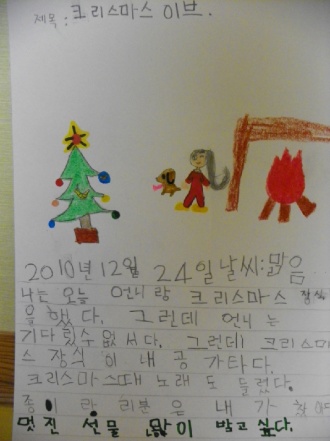 제목: 크리스마스 이브.
2010년 12월 24일 날씨: 맑음
나는 오늘 언니랑 크리스마스 장식
을 했다. 그런데 언니는
기다릴수없서다. 그런데 크리스마
스 장식이 내 공 가타다.
크리스마스때 노래도 들렀다.
종이랑 리분은 내가
멋진 선물 많이 받고 싶다.